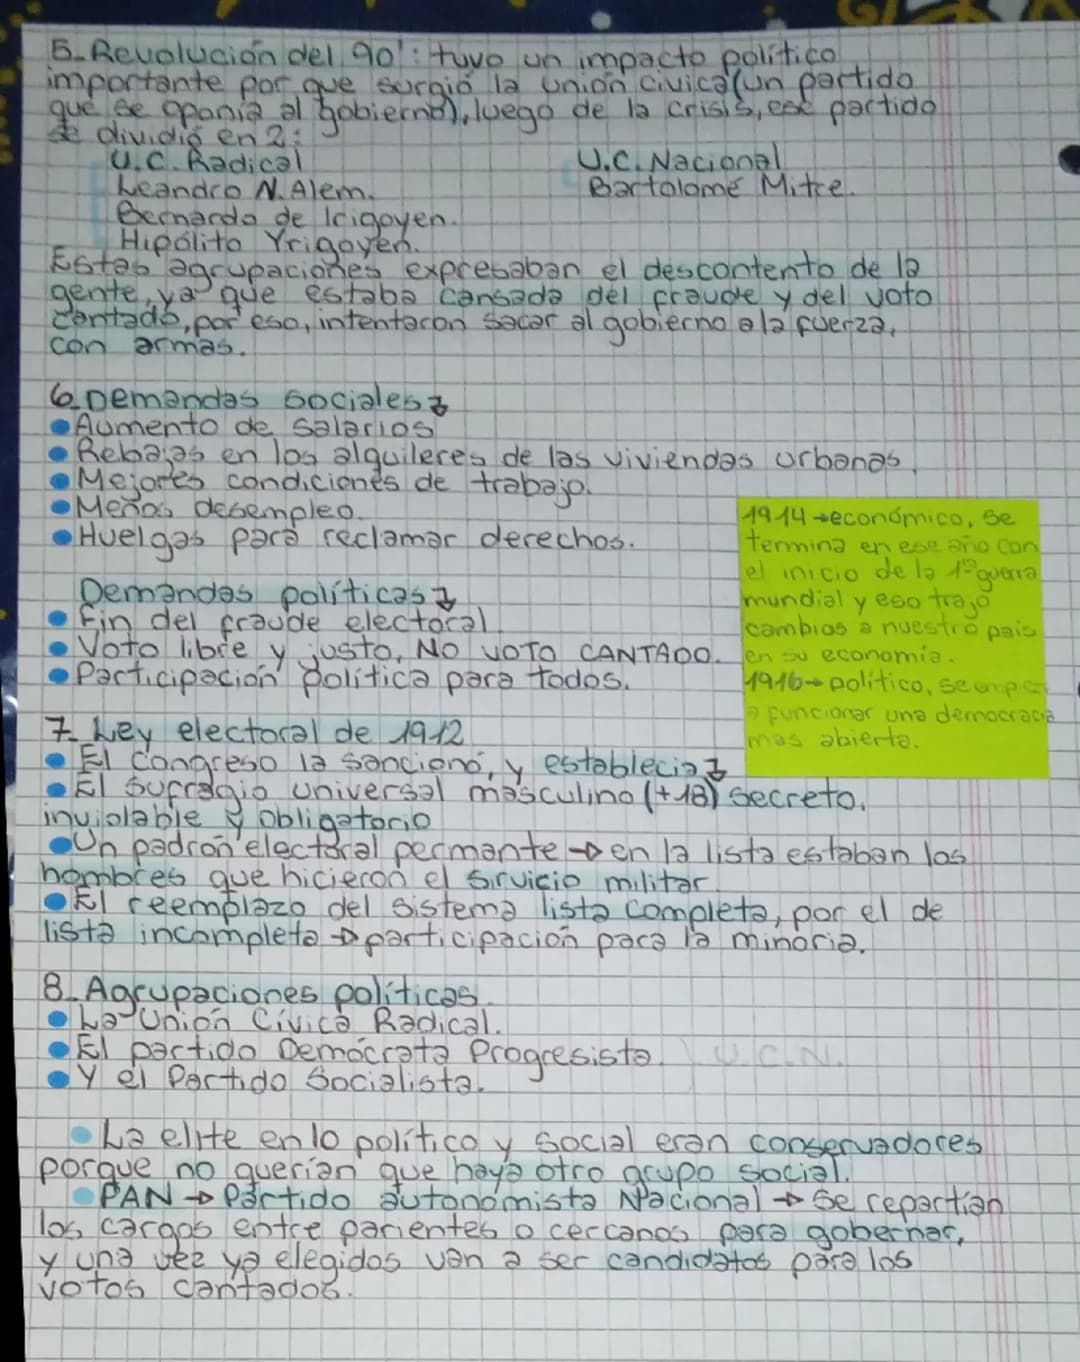 5. Revolución del 90': tuvo un impacto político
importante por que surgió la unión civica (un partido
que se oponía al gobierno), luego de la crisis, ese partido
se dividió en 2:
U.C. Radical
U.C. Nacional
Leandro N. Alem.
Bartolomé Mitre.
Bernardo de Irigoyen.
Hipólito Yrigoyen.
Estas agrupaciones expresaban el descontento de la
gente, ya que estaba cansada del fraude y del voto
cantado, por eso, intentaron sacar al gobierno a la fuerza,
con armas.
6. Demandas sociales
• Aumento de salarios
• Rebajas en los alquileres de las viviendas urbanas.
• Mejores condiciones de trabajo.
• Menos desempleo.
• Huelgas para reclamar derechos.
Demandas políticas
• Fin del fraude electoral
• Voto libre y justo, NO VOTO CANTADO.
• Participación política para todos.
1914 → económico, se
termina en ese año con
el inicio de la 1º guerra
mundial y eso trajo
cambios a nuestro pais
en su economía.
1916 → político, se
a funcionar una democracia
mas abierta.
7. Ley electoral de 1912
• El Congreso la sancionó, y establecia
• El sufragio universal masculino (+18) secreto,
inviolable y obligatorio
• Un padrón electoral permante → en la lista estaban los
hombres que hicieron el sirvicio militar
• El reemplazo del sistema lista completa, por el de
lista incompleta → participación para la minoria.
8. Agrupaciones políticas.
• La Unión Cívica Radical.
• El partido Demócrata Progresista. U.C.N.
• Y el Partido Socialista.
• La elite en lo político y social eran conservadores
porque no querían que haya otro grupo social.
• PAN → Partido autonomista Nacional → Se repartían
los cargos entre parientes o cercanos para gobernar,
y una vez ya elegidos van a ser candidatos para los
votos cantados.